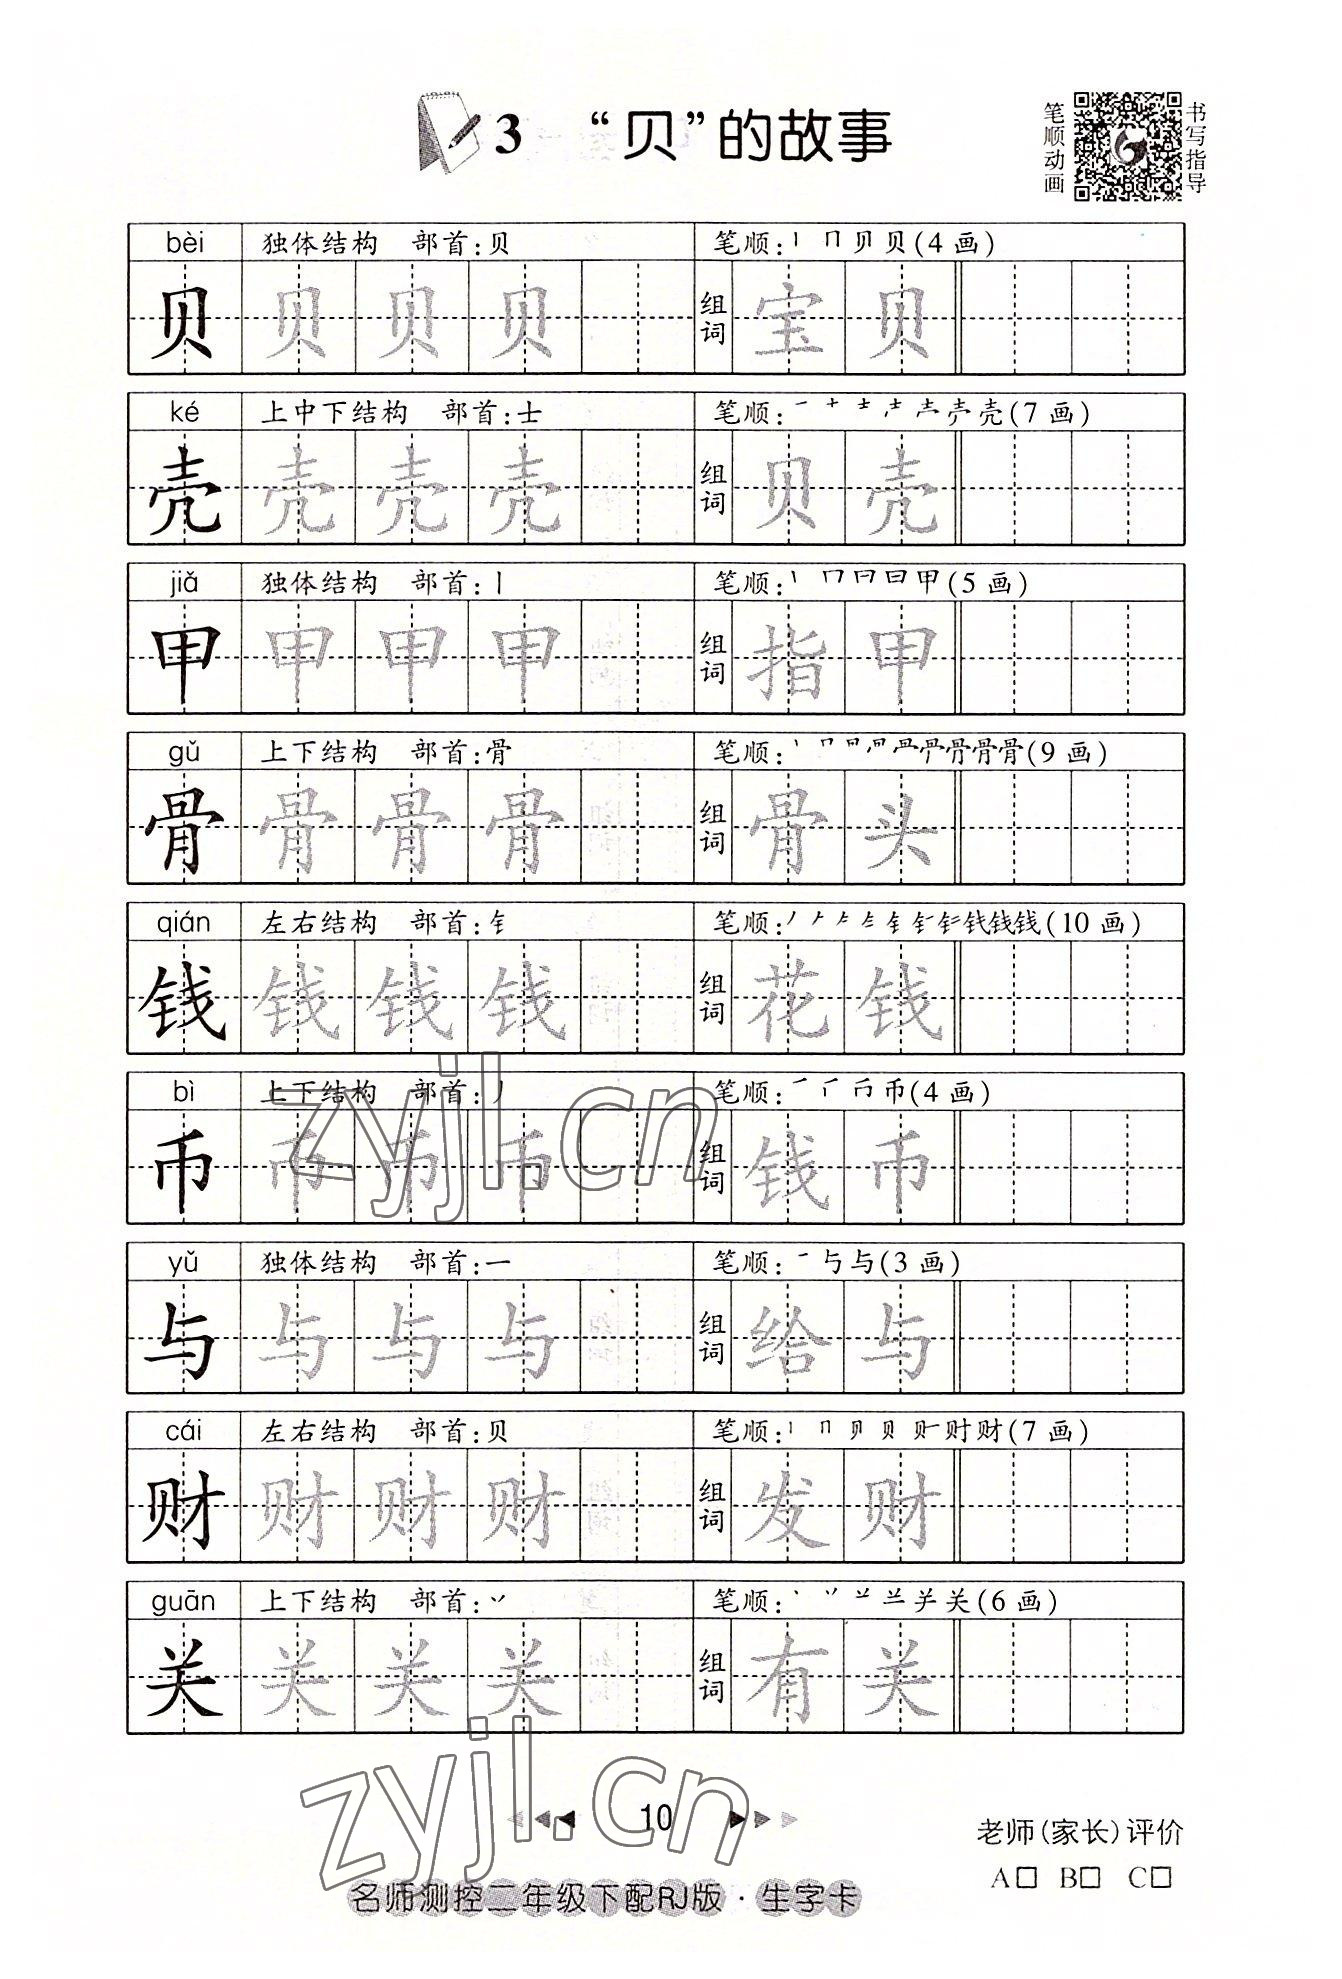 3 “贝”的故事
笔顺动画
书写指导
bèi 独体结构 部首:贝 笔顺:丨 冂 贝 贝(4 画)
贝 贝 贝 贝 组词 宝 贝
ké 上中下结构 部首:士 笔顺: 壳(7 画)
壳 壳 壳 壳 组词 贝 壳
jiǎ 独体结构 部首:丨 笔顺:丨 冂 曰 甲(5 画)
甲 甲 甲 甲 组词 指 甲
gǔ 上下结构 部首:骨 笔顺: 骨(9 画)
骨 骨 骨 骨 组词 骨 头
qián 左右结构 部首:钅 笔顺: 钱(10 画)
钱 钱 钱 钱 组词 花 钱
bì 上下结构 部首:丿 笔顺: 币(4 画)
币 币 币 币 组词 钱 币
yǔ 独体结构 部首:一 笔顺:一 与 与(3 画)
与 与 与 与 组词 给 与
cái 左右结构 部首:贝 笔顺:丨 冂 贝 贝 财 财(7 画)
财 财 财 财 组词 发 财
guān 上下结构 部首:丷 笔顺:丶 丷 兰 关(6 画)
关 关 关 关 组词 有 关
zyjl.cn
zyjl.cn
10
老师(家长)评价
A□ B□ C□
名师测控二年级下配RJ版·生字卡